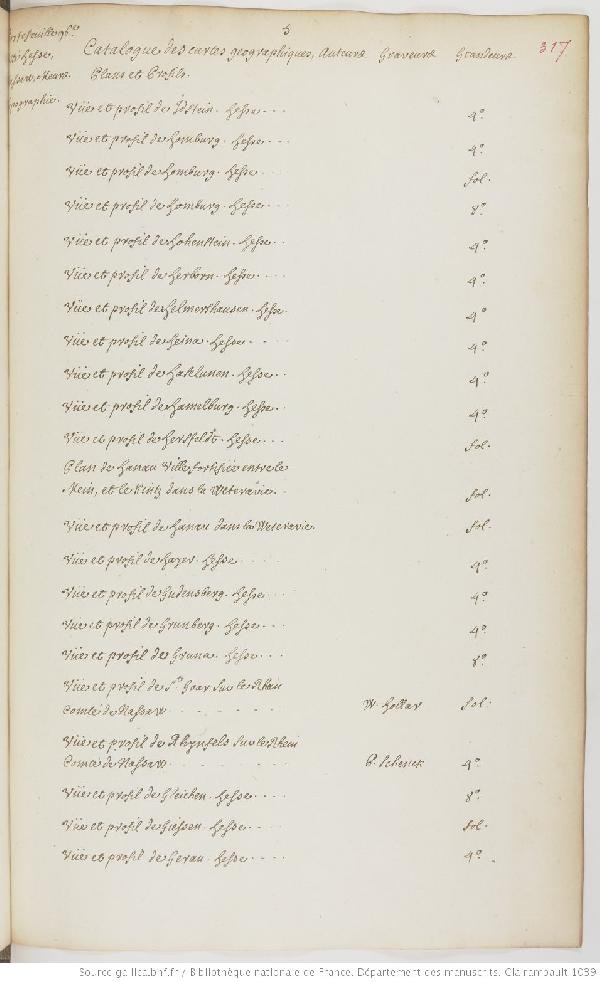 5
317
Catalogue des cartes geographiques, Auteurs Graveurs Grandeurs
Plans et Profils.
Hesse,
Vüe et profil de Idstein. Hesse - - - 4º
Vüe et profil de Homburg. Hesse - - - 4º
Vüe et profil de Homburg. Hesse - - - fol.
Vüe et profil de Homburg. Hesse - - - 8º
Vüe et profil de Hohenstein. Hesse - - 4º
Vüe et profil de Herborn. Hesse - - - 4º
Vüe et profil de Helmershausen. Hesse 4º
Vüe et profil de Heina. Hesse - - - 4º
Vüe et profil de Hatslunen. Hesse - - 4º
Vüe et profil de Hamelburg. Hesse - - 4º
Vüe et profil de Hersfeldt. Hesse - - - fol.
Plan de Hanau Ville fortifiée entre le
Mein, et le Kintz dans la Weteravie. - fol.
Vüe et profil de Hanau dans la Weteravie. fol.
Vüe et profil de Hayer. Hesse - - - - 4º
Vüe et profil de Gudensberg. Hesse - - 4º
Vüe et profil de Grunberg. Hesse - - - 4º
Vüe et profil de Gruna. Hesse - - - 8º
Vüe et profil de St Goar sur le Rhin
Comté de Nassaw - - - - - - W. Hollar fol.
Vüe et profil de Rhynfels sur le Rhein
Comté de Nassaw - - - - - - P. Schenck 4º
Vüe et profil de Gleichen. Hesse - - - - 8º
Vüe et profil de Giessen. Hesse - - - - fol.
Vüe et profil de Gerau. Hesse - - - - 4º
Source gallica.bnf.fr / Bibliothèque nationale de France. Département des manuscrits. Clairambault 1039